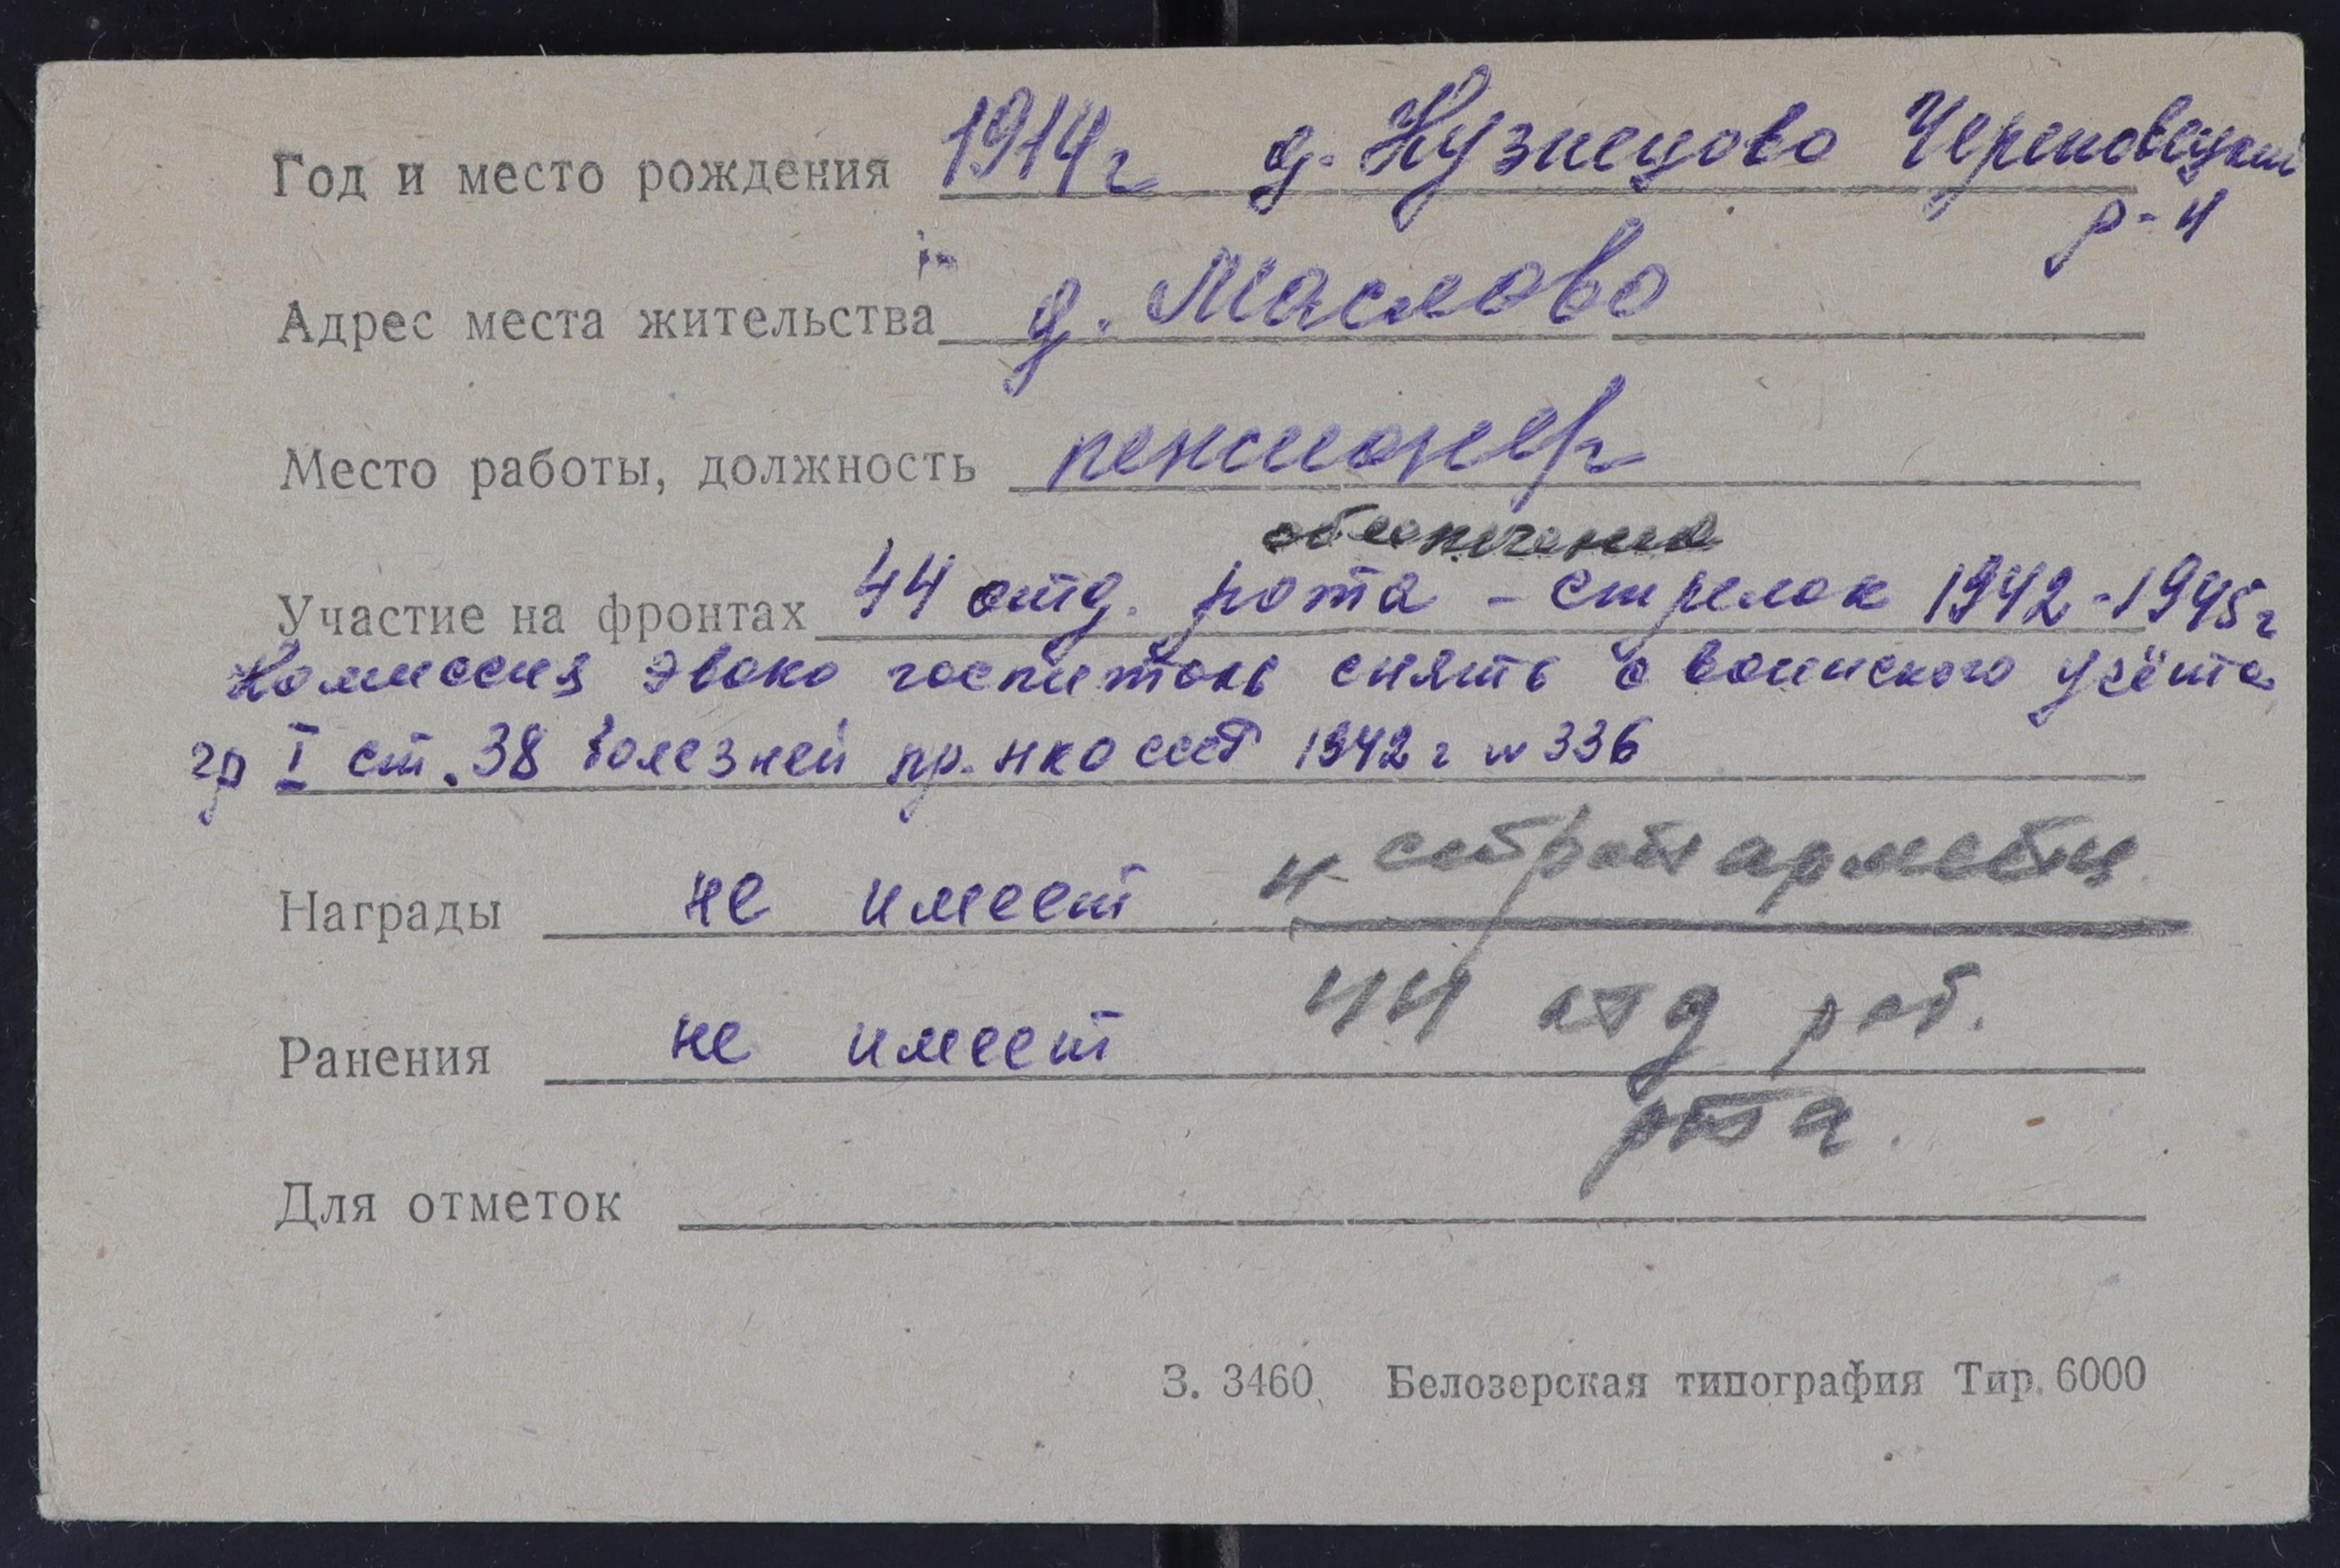 Год и место рождения 1914г д. Кузнецово Череповецкий
р-н
Адрес места жительства д. Маслово
Место работы, должность пенсионер
обеспечения
Участие на фронтах 44 отд. рота - стрелок 1942-1945г
Комиссия эвако госпиталь снять с воинского учёта
гр I ст. 38 болезней пр. НКО СССР 1942 г N 336
Награды не имеет
Ранения не имеет 44 отд раб.
рота.
Для отметок
З. 3460 Белозерская типография Тир. 6000